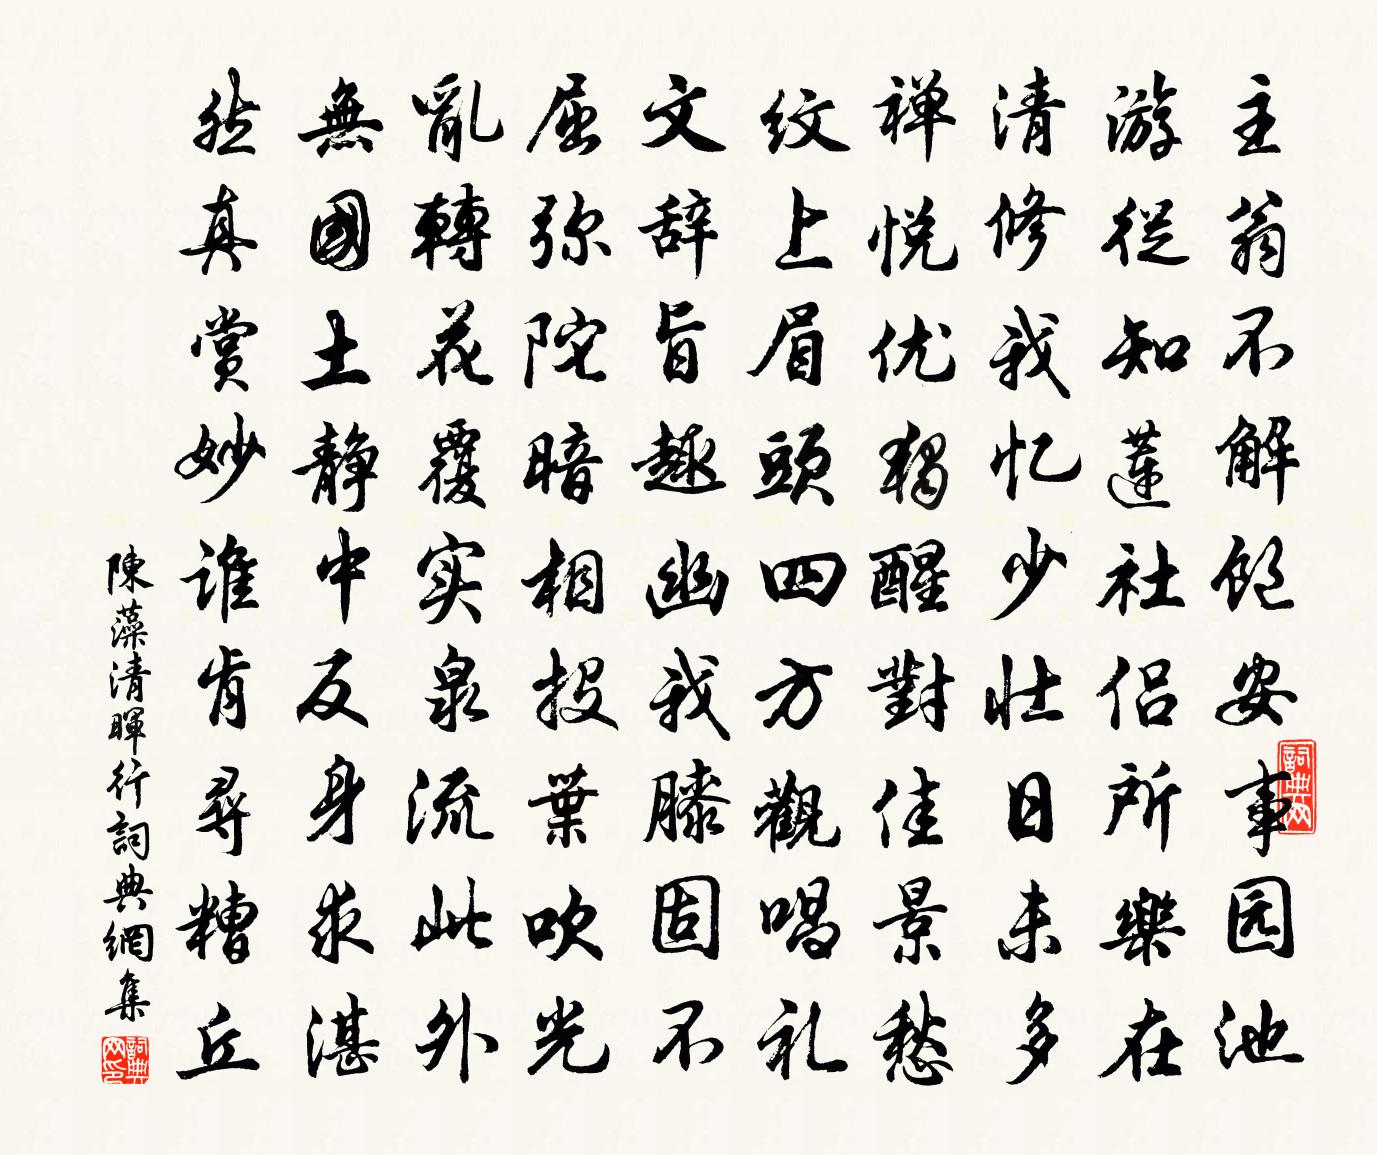 主翁不解饱安事园池
游從知蓮社侣所樂在
清修我忆少壮日未多
禅悦优獨醒對佳景愁
纹上眉頭四方觀唱礼
文辞旨趣幽我膝固不
屈弥陀暗相投葉吹光
亂轉花覆实泉流此外
無國土静中反身求湛
然真賞妙谁肯尋糟丘
陳藻清暉行詞典網集
詞典网
詞典网印